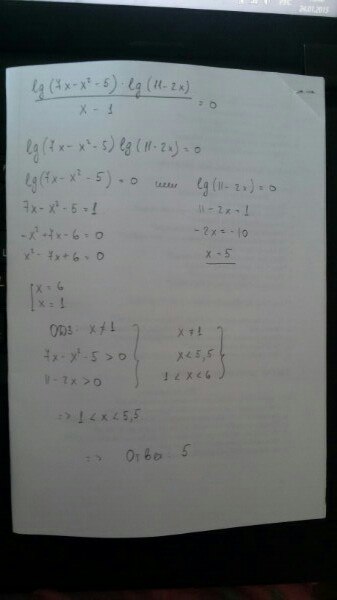 24.01.2015
lg(7x-x²-5)·lg(11-2x)
x-1
=0
lg(7x-x²-5)lg(11-2x)=0
lg(7x-x²-5)=0 или lg(11-2x)=0
7x-x²-5=1 11-2x=1
-x²+7x-6=0 -2x=-10
x²-7x+6=0 x=5
[x=6
x=1
ОДЗ: x≠1 x≠1
7x-x²-5>0 x<5,5
11-2x>0 1<x<6
=>1<x<5,5
=> Ответ: 5